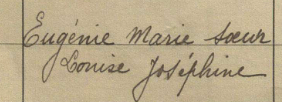 Eugénie Marie Soeur
Louise Joséphine